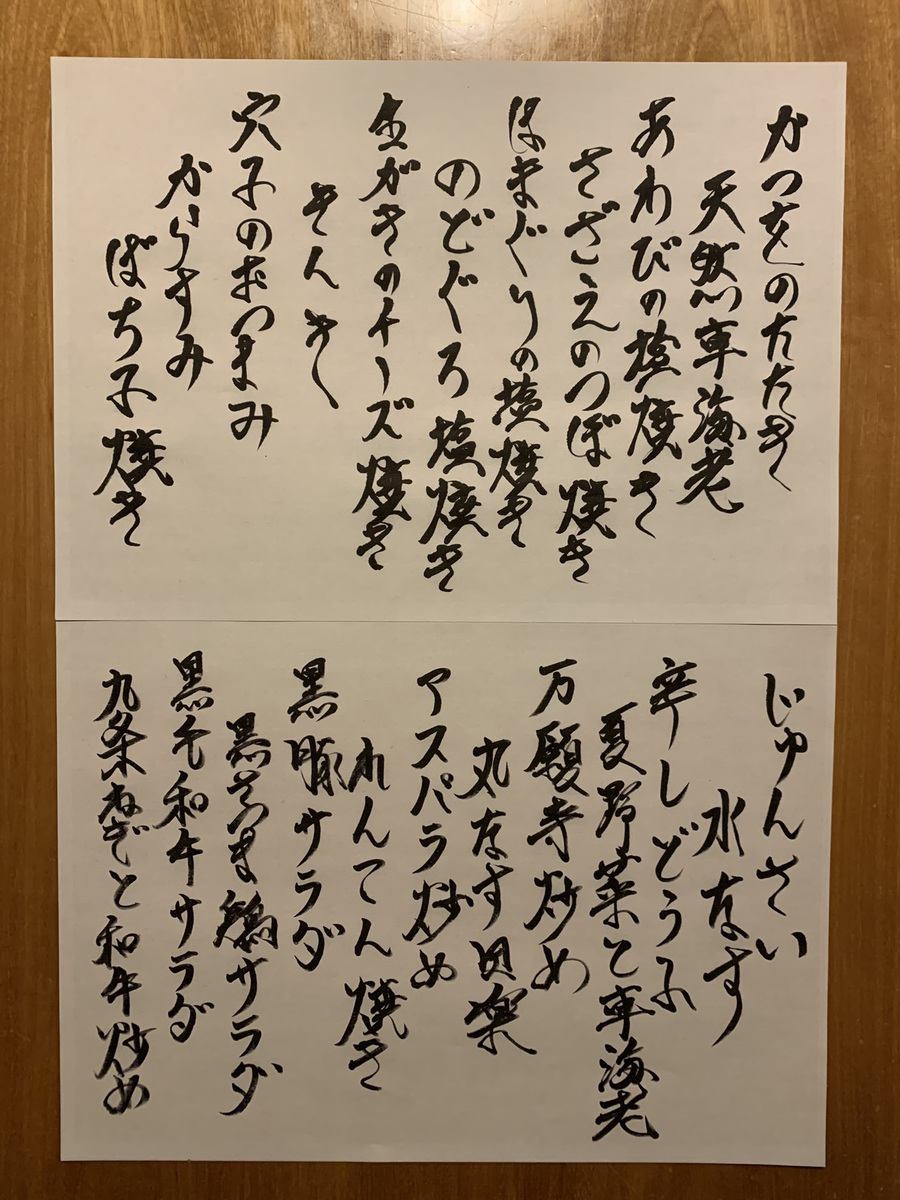 かつをのたたき
天然車海老
あわびの塩焼き
さざえのつぼ焼き
はまぐりの塩焼き
のどぐろ塩焼き
生がきのチーズ焼き
きんき
穴子のおつまみ
からすみ
ばち子焼き
じゅんさい
水なす
辛しどうふ
夏野菜と車海老
万願寺炒め
丸なす田楽
アスパラ炒め
れんこん焼き
黒豚サラダ
黒さつま鶏サラダ
黒毛和牛サラダ
九条ねぎと和牛炒め